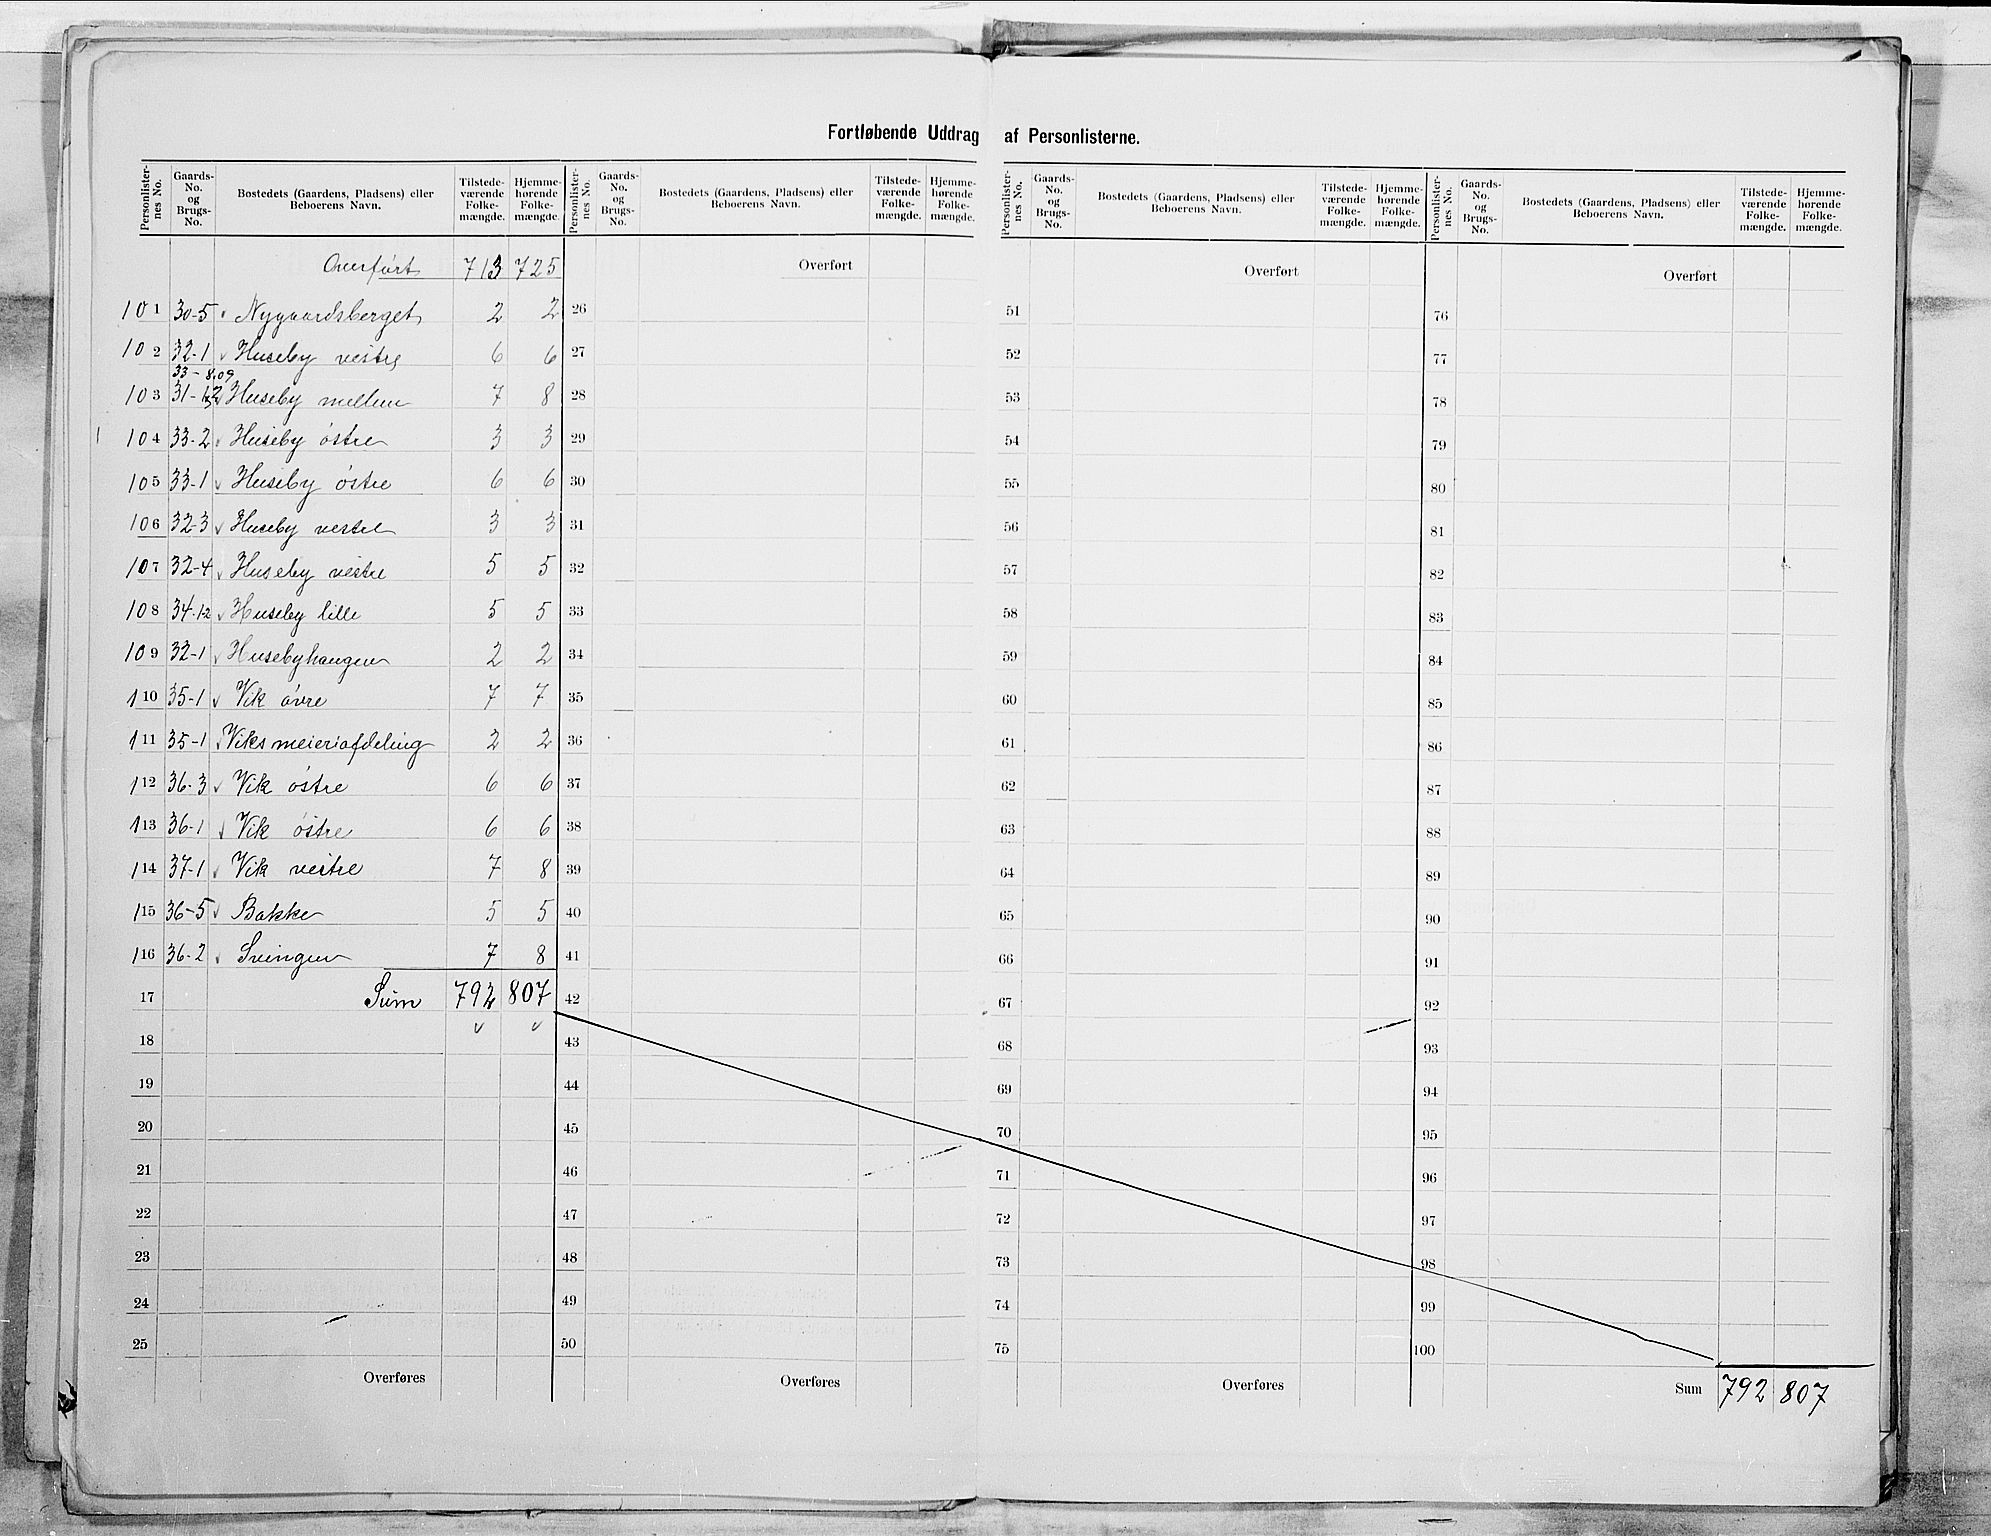 Fortløbende Uddrag af Personlisterne.
Personlisternes No. | Gaards-No. og Brugs-No. | Bostedets (Gaardens, Pladsens) eller Beboerens Navn. | Tilstedeværende Folkemængde. | Hjemmehørende Folkemængde.
Overført 713 725
101 30-5 Nygaardsberget 2 2
102 32-1 Huseby vestre 6 6
33-8,09
103 31-1,2 Huseby mellem 7 8
104 33-2 Huseby östre 3 3
105 33-1 Huseby östre 6 6
106 32-3 Huseby vestre 3 3
107 32-4 Huseby vestre 5 5
108 34-1-2 Huseby lille 5 5
109 32-1 Husebyhaugen 2 2
110 35-1 Vik övre 7 7
111 35-1 Viks meieriafdeling 2 2
112 36-3 Vik östre 6 6
113 36-1 Vik östre 6 6
114 37-1 Vik vestre 7 8
115 36-5 Bakke 5 5
116 36-2 Svingen 7 8
17 Sum 792 807
18
19
20
21
22
23
24
25
Overføres
Personlisternes No. | Gaards-No. og Brugs-No. | Bostedets (Gaardens, Pladsens) eller Beboerens Navn. | Tilstedeværende Folkemængde. | Hjemmehørende Folkemængde.
Overført
26
27
28
29
30
31
32
33
34
35
36
37
38
39
40
41
42
43
44
45
46
47
48
49
50
Overføres
Personlisternes No. | Gaards-No. og Brugs-No. | Bostedets (Gaardens, Pladsens) eller Beboerens Navn. | Tilstedeværende Folkemængde. | Hjemmehørende Folkemængde.
Overført
51
52
53
54
55
56
57
58
59
60
61
62
63
64
65
66
67
68
69
70
71
72
73
74
75
Overføres
Personlisternes No. | Gaards-No. og Brugs-No. | Bostedets (Gaardens, Pladsens) eller Beboerens Navn. | Tilstedeværende Folkemængde. | Hjemmehørende Folkemængde.
Overført
76
77
78
79
80
81
82
83
84
85
86
87
88
89
90
91
92
93
94
95
96
97
98
99
100
Sum 792 807